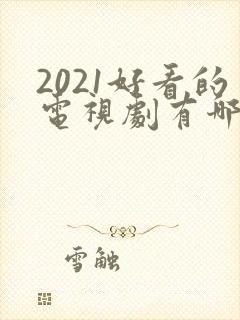 2021好看的
電視劇有哪
雪触